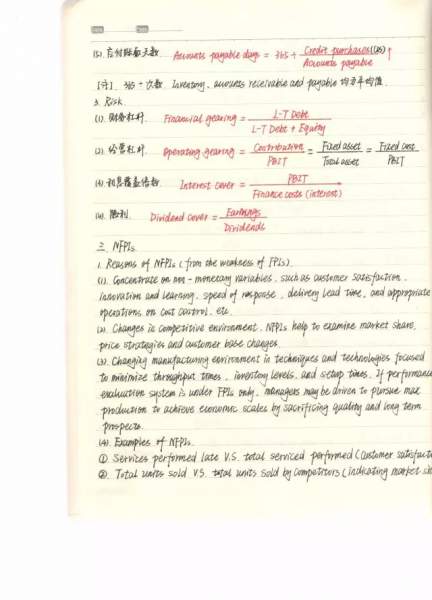 (5). 应付账款天数 Accounts payable days = 365 ÷ Credit purchases (COS) / Accounts payable ↑
[注]. 365 ÷ 次数. Inventory, accounts receivable and payable 均为平均值.
3. Risk.
(1). 财务杠杆. Financial gearing = L-T Debt / L-T Debt + Equity
(2). 经营杠杆. Operating gearing = Contribution / PBIT = Fixed asset / Total asset = Fixed cost / PBIT
(3). 利息覆盖倍数. Interest cover = PBIT / Finance costs (interest)
(4). 股利. Dividend cover = Earnings / Dividends
三. NFPIs.
1. Reasons of NFPIs (from the weakness of FPIs).
(1). Concentrate on non-monetary variables, such as customer satisfaction,
innovation and learning, speed of response, delivery lead time, and appropriate
operations on cost control, etc.
(2). Changes in competitive environment. NFPIs help to examine market share,
price strategies and customer base changes.
(3). Changing manufacturing environment in techniques and technologies focused
to minimize throughput times, inventory levels, and setup times. If performance
evaluation system is under FPIs only, managers may be driven to pursue max
production to achieve economic scales by sacrificing quality and long term
prospects.
(4). Examples of NFPIs.
① Services performed late V.S. total serviced performed (customer satisfact
② Total units sold V.S. total units sold by competitors (indicating market sh